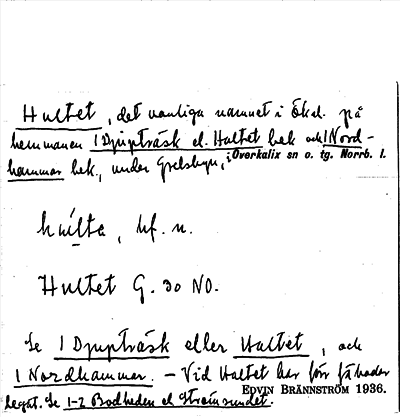 Hultet, det vanliga namnet i Ökal. på
hemmanen 1 Djupträsk el. Hultet bek och 1 Nord-
hammar bek, under Grelsbyn, i Överkalix sn o. tg. Norrb. l.
hulta, bf. n.
Hultet G. 30 NO.
Se 1 Djupträsk eller Hultet, och
1 Nordhammar. - Vid Hultet har förr fäbodar
legat. Se 1-2 Bodheden el Strömsundet.
EDVIN BRÄNNSTRÖM 1936.